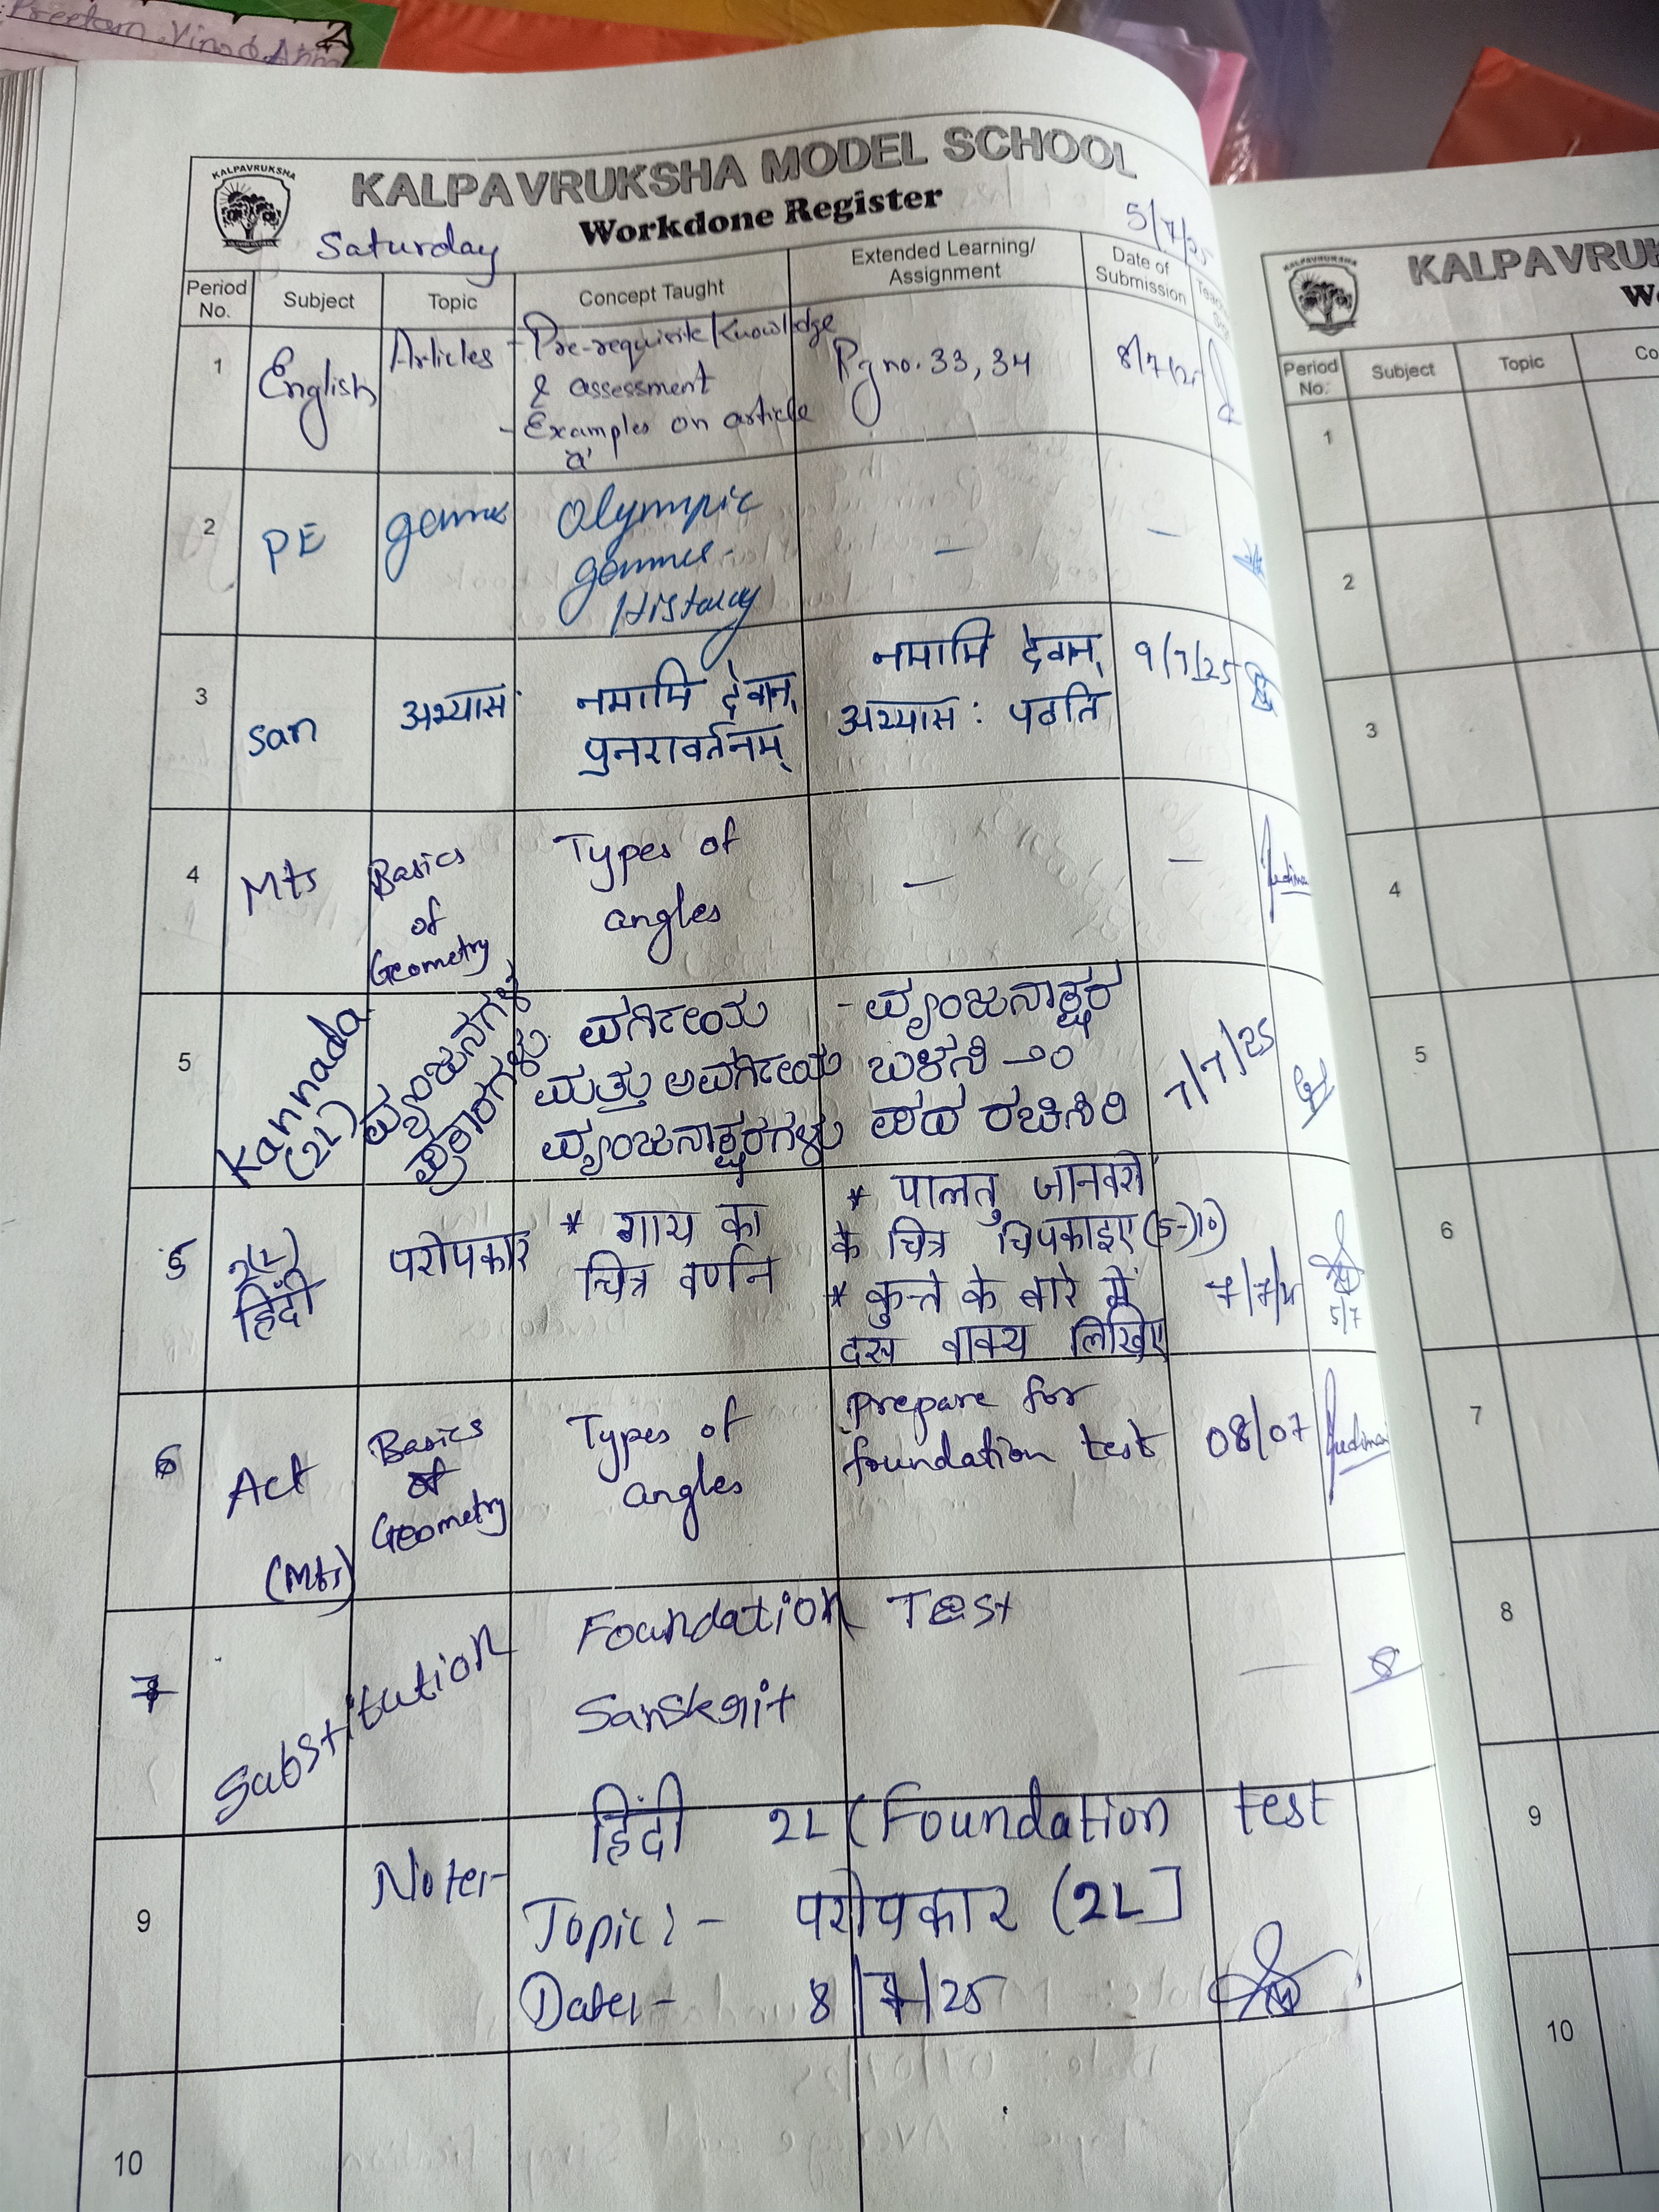 Preetam
KALPAVRUKSHA
KALPAVRUKSHA MODEL SCHOOL
Workdone Register
Saturday
5/7/25
Period No.
Subject
Topic
Concept Taught
Extended Learning/
Assignment
Date of
Submission
1
English
Articles
- Pre-requisite knowledge
& assessment
- Examples on article
'a'
Pg no. 33, 34
8/7/25
2
PE
games
Olympic
games -
History
—
—
3
San
अभ्यासः
नमामि देवान्
पुनरावर्तनम्
नमामि देवान्
अभ्यास : पठति
9/7/25
4
Mts
Basics
of
Geometry
Types of
angles
—
—
5
Kannada
(2L)
ವ್ಯಂಜನಗಳ
ಪ್ರಕಾರಗಳು
ವರ್ಗೀಯ
ಮತ್ತು ಅವರ್ಗೀಯ
ವ್ಯಂಜನಾಕ್ಷರಗಳು
- ವ್ಯಂಜನಾಕ್ಷರ
ಬಳಸಿ -೨೦
ಪದ ರಚಿಸಿರಿ
7/7/25
5
2(L)
हिंदी
परोपकार
* गाय का
चित्र वर्णन
* पालतु जानवरों
के चित्र चिपकाइए (5-10)
* कुत्ते के बारे में
दस वाक्य लिखिए
7/7/25
5/7
6
Act
(Mts)
Basics
of
Geometry
Types of
angles
Prepare for
foundation test
08/07
7
Substitution
Foundation Test
Sanskrit
—
9
Note:-
हिंदी 2L (Foundation test
Topic:- परोपकार (2L]
Date:- 8/7/25
10
KALPAVRUKSHA
KALPAVRUK
Period
No.
Subject
Topic
Co
1
2
3
4
5
6
7
8
9
10